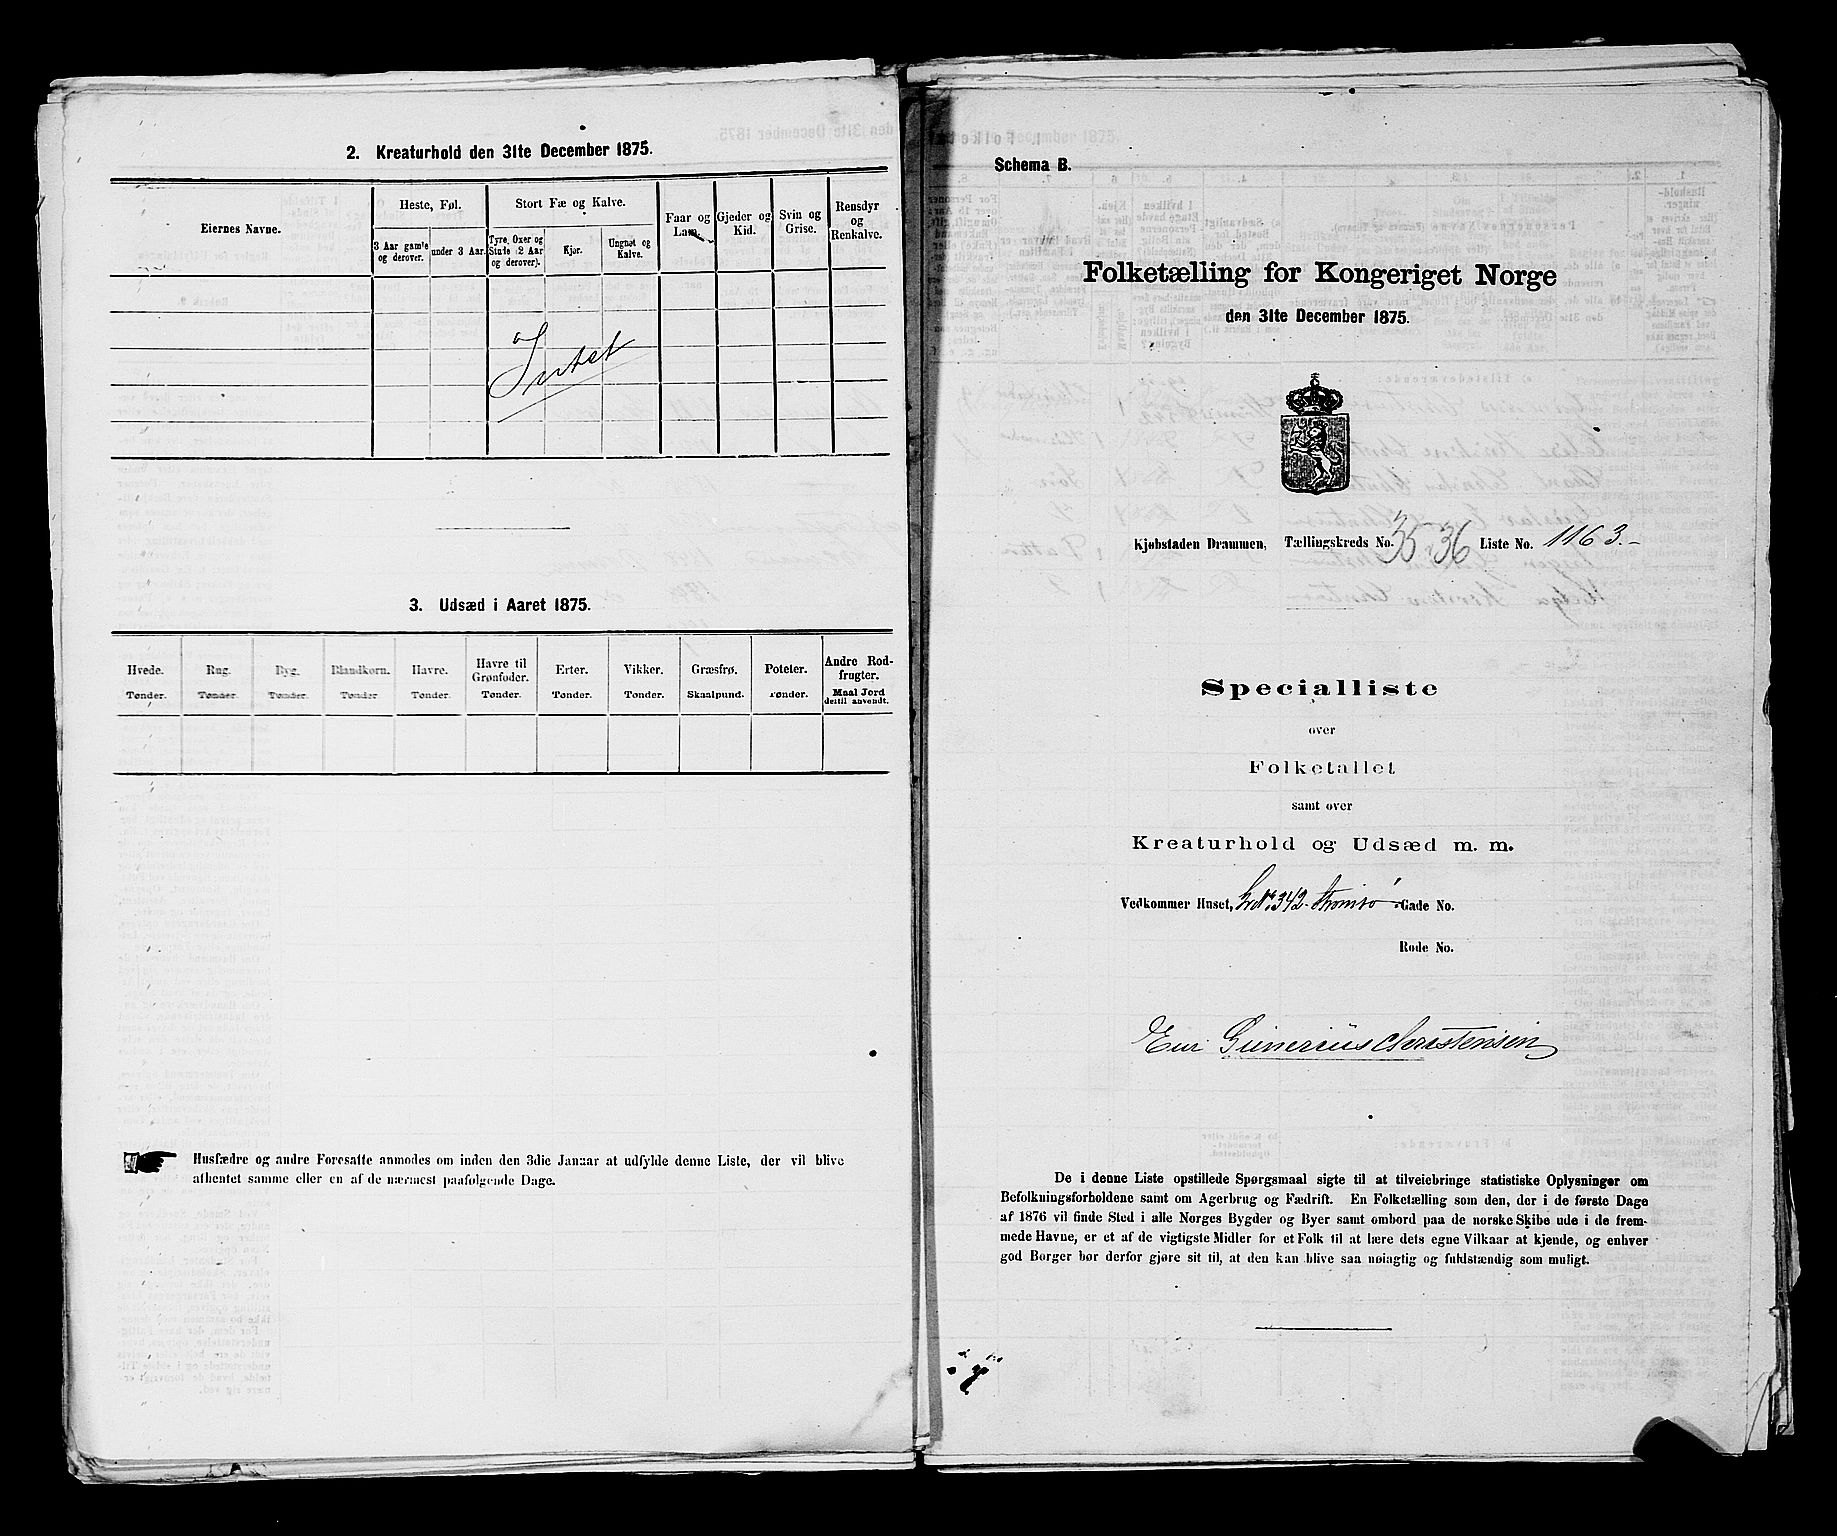 2. Kreaturhold den 31te December 1875.
Eiernes Navne.
Heste, Føl.
Stort Fæ og Kalve.
Faar og Lam.
Gjeder og Kid.
Svin og Grise.
Rensdyr og Renkalve.
3 Aar gamle og derover.
under 3 Aar.
Tyre, Oxer og Stude (2 Aar og derover).
Kjør.
Ungnøt og Kalve.
Intet
3. Udsæd i Aaret 1875.
Hvede. Tønder.
Rug. Tønder.
Byg. Tønder.
Blandkorn. Tønder.
Havre. Tønder.
Havre til Grønfoder. Tønder.
Erter. Tønder.
Vikker. Tønder.
Græsfrø. Skaalpund.
Poteter. Tønder.
Andre Rodfrugter. Maal Jord dertil anvendt.
Husfædre og andre Foresatte anmodes om inden den 3die Januar at udfylde denne Liste, der vil blive
afhentet samme eller en af de nærmest paafølgende Dage.
Schema B.
Folketælling for Kongeriget Norge
den 31te December 1875.
Kjøbstaden Drammen, Tællingskreds No. 35 36 Liste No. 1163.-
Specialliste
over
Folketallet
samt over
Kreaturhold og Udsæd m. m.
Vedkommer Huset, Gr No. 342. Strømsø Gade No.
Rode No.
Eier Gunerius Christensen
De i denne Liste opstillede Spørgsmaal sigte til at tilveiebringe statistiske Oplysninger om
Befolkningsforholdene samt om Agerbrug og Fædrift. En Folketælling som den, der i de første Dage
af 1876 vil finde Sted i alle Norges Bygder og Byer samt ombord paa de norske Skibe ude i de frem-
mede Havne, er et af de vigtigste Midler for et Folk til at lære dets egne Vilkaar at kjende, og enhver
god Borger bør derfor gjøre sit til, at den kan blive saa nøiagtig og fuldstændig som muligt.